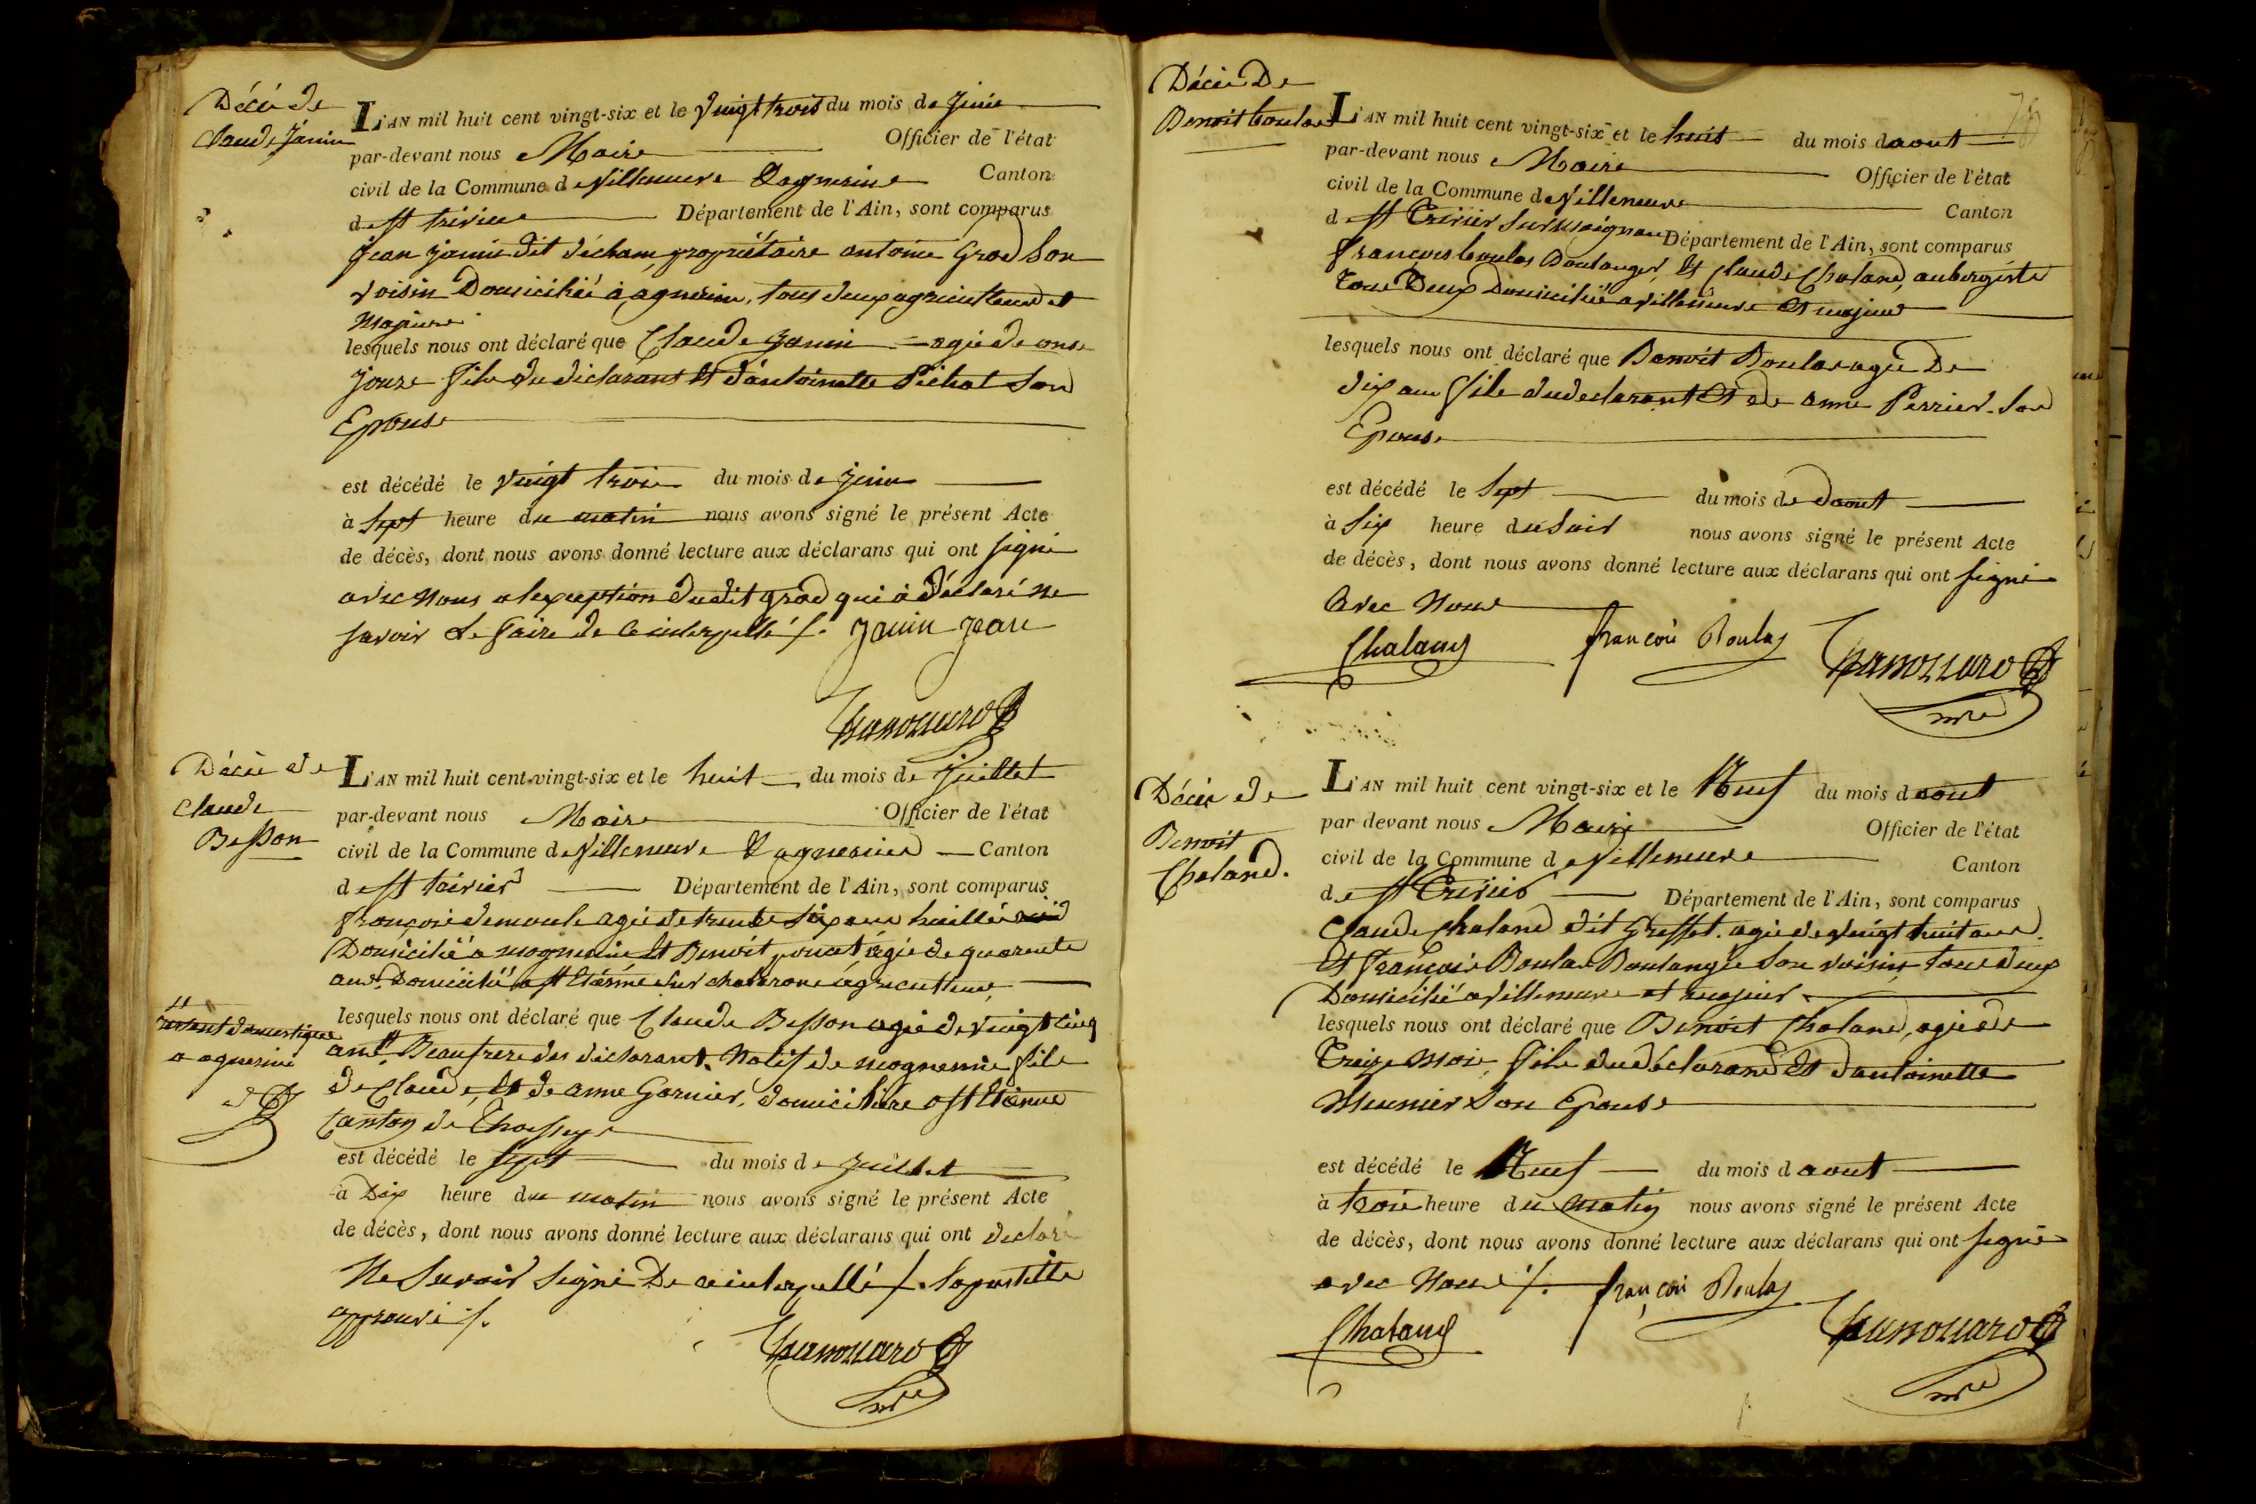 Décè de
Claude Janin
L'AN mil huit cent vingt-six et le vingt trois du mois de juin
par-devant nous Maire Officier de l'état
civil de la Commune de Villeneuve & agnerine Canton
de st trivier Département de l'Ain, sont comparus
jean janin dit décham propriétaire antoine Grod son
voisin Domicilié à agnerine, tous deux agriculteurs et
Majeure
lesquels nous ont déclaré que Claude Janin agé de onze
jours fils du déclarant et d'antoinette Pichat son
Epouse
est décédé le vingt trois du mois de juin
à sept heure du matin nous avons signé le présent Acte
de décès, dont nous avons donné lecture aux déclarans qui ont signé
avec nous a lexception dudit grod qui à déclaré ne
savoir le faire de ce interpellé ./. Janin Jean
Décè de
Claude
Besson
L'AN mil huit cent-vingt-six et le huit du mois de juillet
par-devant nous Maire Officier de l'état
civil de la Commune de Villeneuve & agnerine Canton
de st trivier Département de l'Ain, sont comparus
françois demoule agé de trente six ans
Domicilié a mogneneine et Benoit agé de quarente
ans Domicilié a st Etienne sur chalarone agriculteur
lesquels nous ont déclaré que Claude Besson agé de vingt cinq
ans Beaufrere des déclarant Natif de mogneneine fils
de Claude, et de anne Garnier, domiciliée a st Etienne
Canton de Thoissey
domestique
a agnerine
est décédé le sept du mois de juillet
à Dix heure du matin nous avons signé le présent Acte
de décès, dont nous avons donné lecture aux déclarans qui ont déclaré
Ne savoir signé De ce interpellé ./. lapostille
approuvé ./.
78
Décè De
Benoit boulas
L'AN mil huit cent vingt-six et le huit du mois daout
par-devant nous Maire Officier de l'état
civil de la Commune de Villeneuve Canton
de st Trivier sur moignans Département de l'Ain, sont comparus
françois boulas Boulanger, et Claude Chaland, aubergiste
tous Deux Domicilié a Villeneuve et majeur
lesquels nous ont déclaré que Benoit Boulas agé De
dix ans fils du declarant et de anne Perrier son
Epouse
est décédé le sept du mois de daout
à six heure du soir nous avons signé le présent Acte
de décès, dont nous avons donné lecture aux déclarans qui ont signé
avec Nous
Chaland françois Boulas
Décè de
Benoit
Chaland.
L'AN mil huit cent vingt-six et le Neuf du mois daout
par devant nous Maire Officier de l'état
civil de la Commune de Villeneuve Canton
de st Trivier Département de l'Ain, sont comparus
Claude chaland dit Greffet. agé de vingt huit ans
et françois Boulas Boulangé son voisin tous deux
Domicilié a Villeneuve et majeur
lesquels nous ont déclaré que Benoit Chaland, agé de
Treize Mois, fils du déclarand et dantoinette
Meunier son Epouse
est décédé le Neuf du mois daout
à trois heure du matin nous avons signé le présent Acte
de décès, dont nous avons donné lecture aux déclarans qui ont signé
avec Nous ./. françois Boulas
Chaland